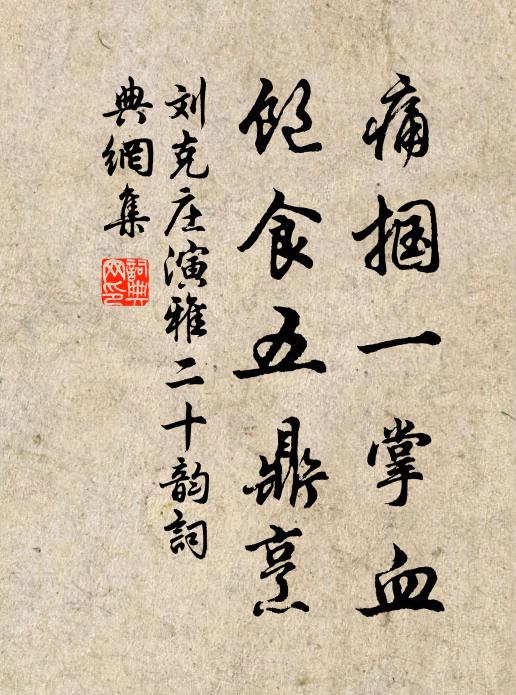 痛掴一掌血
飽食五鼎烹
刘克庄演雅二十韵詞
典網集
詞典
网印